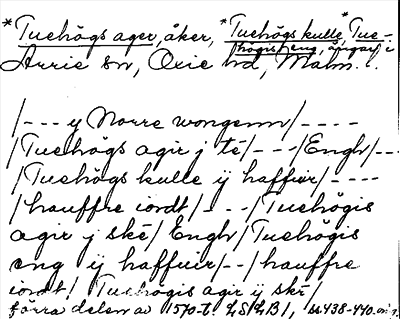 *Tuehögs ager, åker, *Tuehögs kulle *Tue-
högis eng, ängar i
Arrie sn, Oxie hd, Malm.
/--- y Norre wongenn/----
/Tuehögs agir j té/---/Engh/--
/Tuehögs kulle ij haffuir/----
/hauffre iordt/---/Tuehögis
agir y ské/Engh/Tuehögis
eng ij haffuir/--/hauffre
iordt/ Tuehögis agir y ské/
förra delen av 1570-t. LSLB1, ss. 438-440.